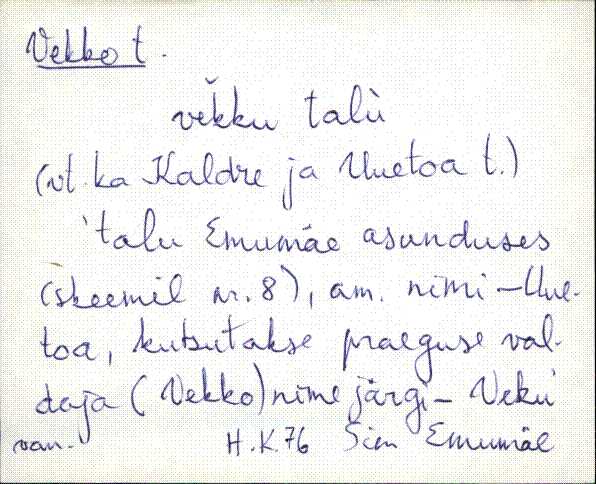 Vekko t.
vĕkku talù
(vt. ka Kaldre ja Uuetoa t.)
'talu Emumäe asunduses
(skeemil nr. 8'), am. nimi – Uue-
toa, kutsutakse praeguse val-
daja (Vekko) nime järgi – Veku'
van. H.K. 76 Sim Emumäe